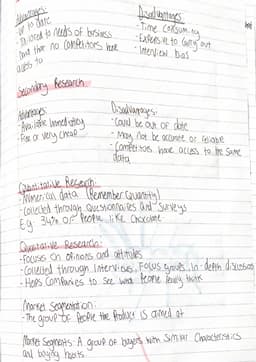 Advantages:
- Up to date
- Tailored to needs of business
- Data that no competitors have
access to
Disadvantages
- Time consuming
- Expensive to carry out
- Interview bias
Secondary Research
Advantages:
- Available immediately
- Free or very cheap
Disadvantages:
- Could be out of date
- May not be accurate or reliable
- Competitors have access to the same
data
Quantitative Research:
- Numerical data (Remember Quantity)
- Collected through Questionnaires and Surveys
E.g 34% of People like Chocolate
Qualitative Research:
- Focuses on opinions and attitudes
- Collected through Interviews, Focus groups, in-depth discussion
- Helps Companies to see what People really think
Market Segmentation:
- The group of People the Product is aimed at
Market Segments: A group of buyers with Similar Characteristics
and buying habits